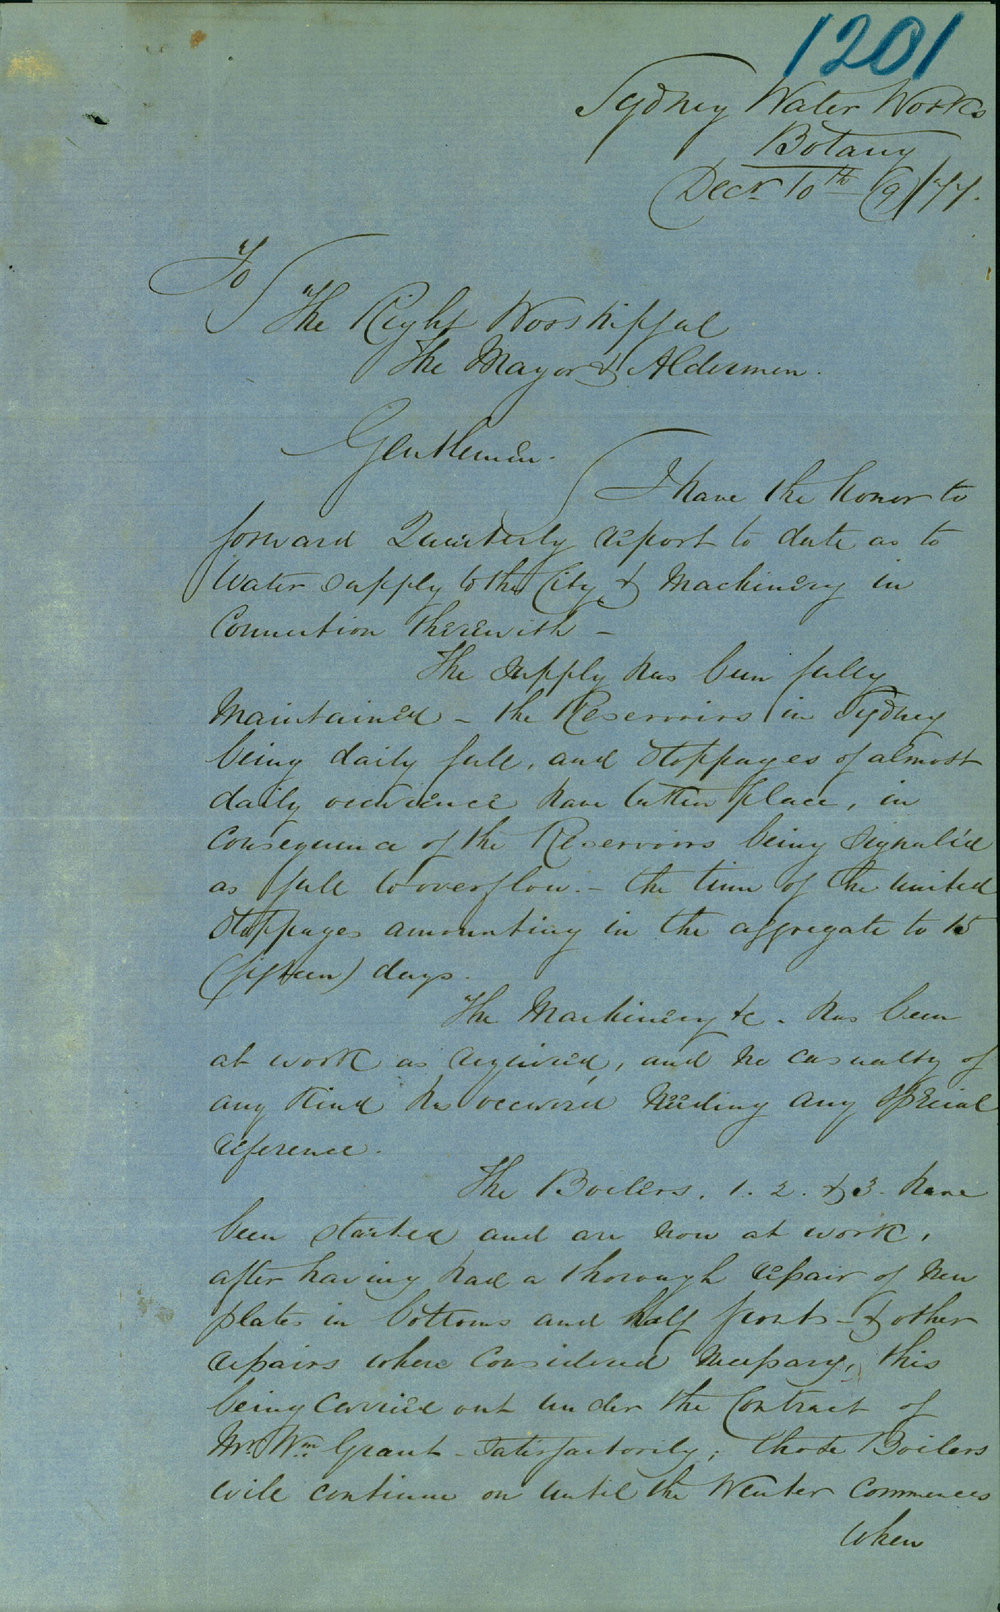 1201
Sydney Water Works
Botany
Decr 10th /77.
To
The Right Worshipful
The Mayor & Aldermen.
Gentlemen.
I have the honor to
forward Quarterly report to date as to
Water supply to the City & Machinery in
Connection therewith –
The supply has been fully
Maintained – the Reservoirs in Sydney
being daily full, and stoppages of almost
daily occurence have taken place, in
consequence of the Reservoirs being signaled
as full to overflow. – the time of the united
stoppages amounting in the aggregate to 15
(fifteen) days.
The Machinery &c. has been
at work as required, and no casualty of
any kind has occured needing any special
reference.
The Boilers. 1. 2. & 3. have
been started and are now at work,
after having had a thorough repair of new
plates in bottoms and half fronts – & other
repairs where considered necessary, this
being carried out under the Contract of
Mr Wm Grant – satisfactorily; these Boilers
will continue on until the Winter commences
when